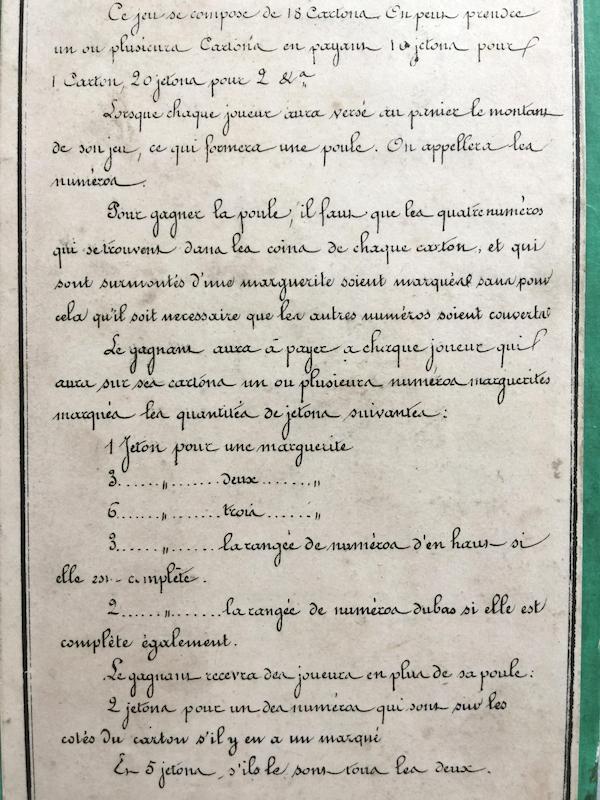 Ce jeu se compose de 18 Cartons. On peut prendre
un ou plusieurs Cartons en payant 10 jetons pour
1 Carton, 20 jetons pour 2 &a
Lorsque chaque joueur aura versé au panier le montant
de son jeu, ce qui formera une poule. On appellera les
numéros.
Pour gagner la poule, il faut que les quatre numéros
qui se trouvent dans les coins de chaque carton, et qui
sont surmontés d'une marguerite soient marqués sans pour
cela qu'il soit necessaire que les autres numéros soient couverts
Le gagnant aura à payer a chaque joueur qui
aura sur ses cartons un ou plusieurs numéros marguerites
marqués les quantités de jetons suivantes:
1 Jeton pour une marguerite
3......„.......deux......„
6......„.......trois......„
3......„.......la rangée de numéros d'en haut si
elle est complète.
2......„.......la rangée de numéros du bas si elle est
complète également.
Le gagnant recevra des joueurs en plus de sa poule:
2 jetons pour un des numéros qui sont sur les
cotés du carton s'il y en a un marqué
Et 5 jetons, s'ils le sont tous les deux.